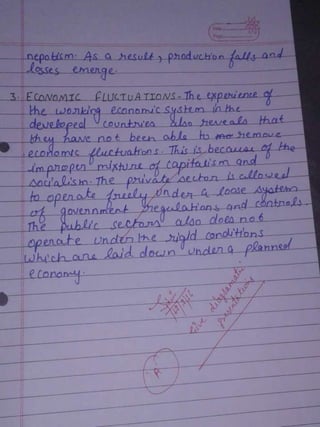 nepotism. As a result, production falls and
losses emerge.
3. ECONOMIC FLUCTUATIONS - The experience of
the working economic system in the
developed countries also reveals that
they have not been able to remove
economic fluctuations. This is because of the
improper mixture of capitalism and
socialism. The private sector is allowed
to operate freely under a loose system
of government regulations and controls.
The public sectors also does not
operate under the rigid conditions
which are laid down under a planned
economy.
Give
presentations